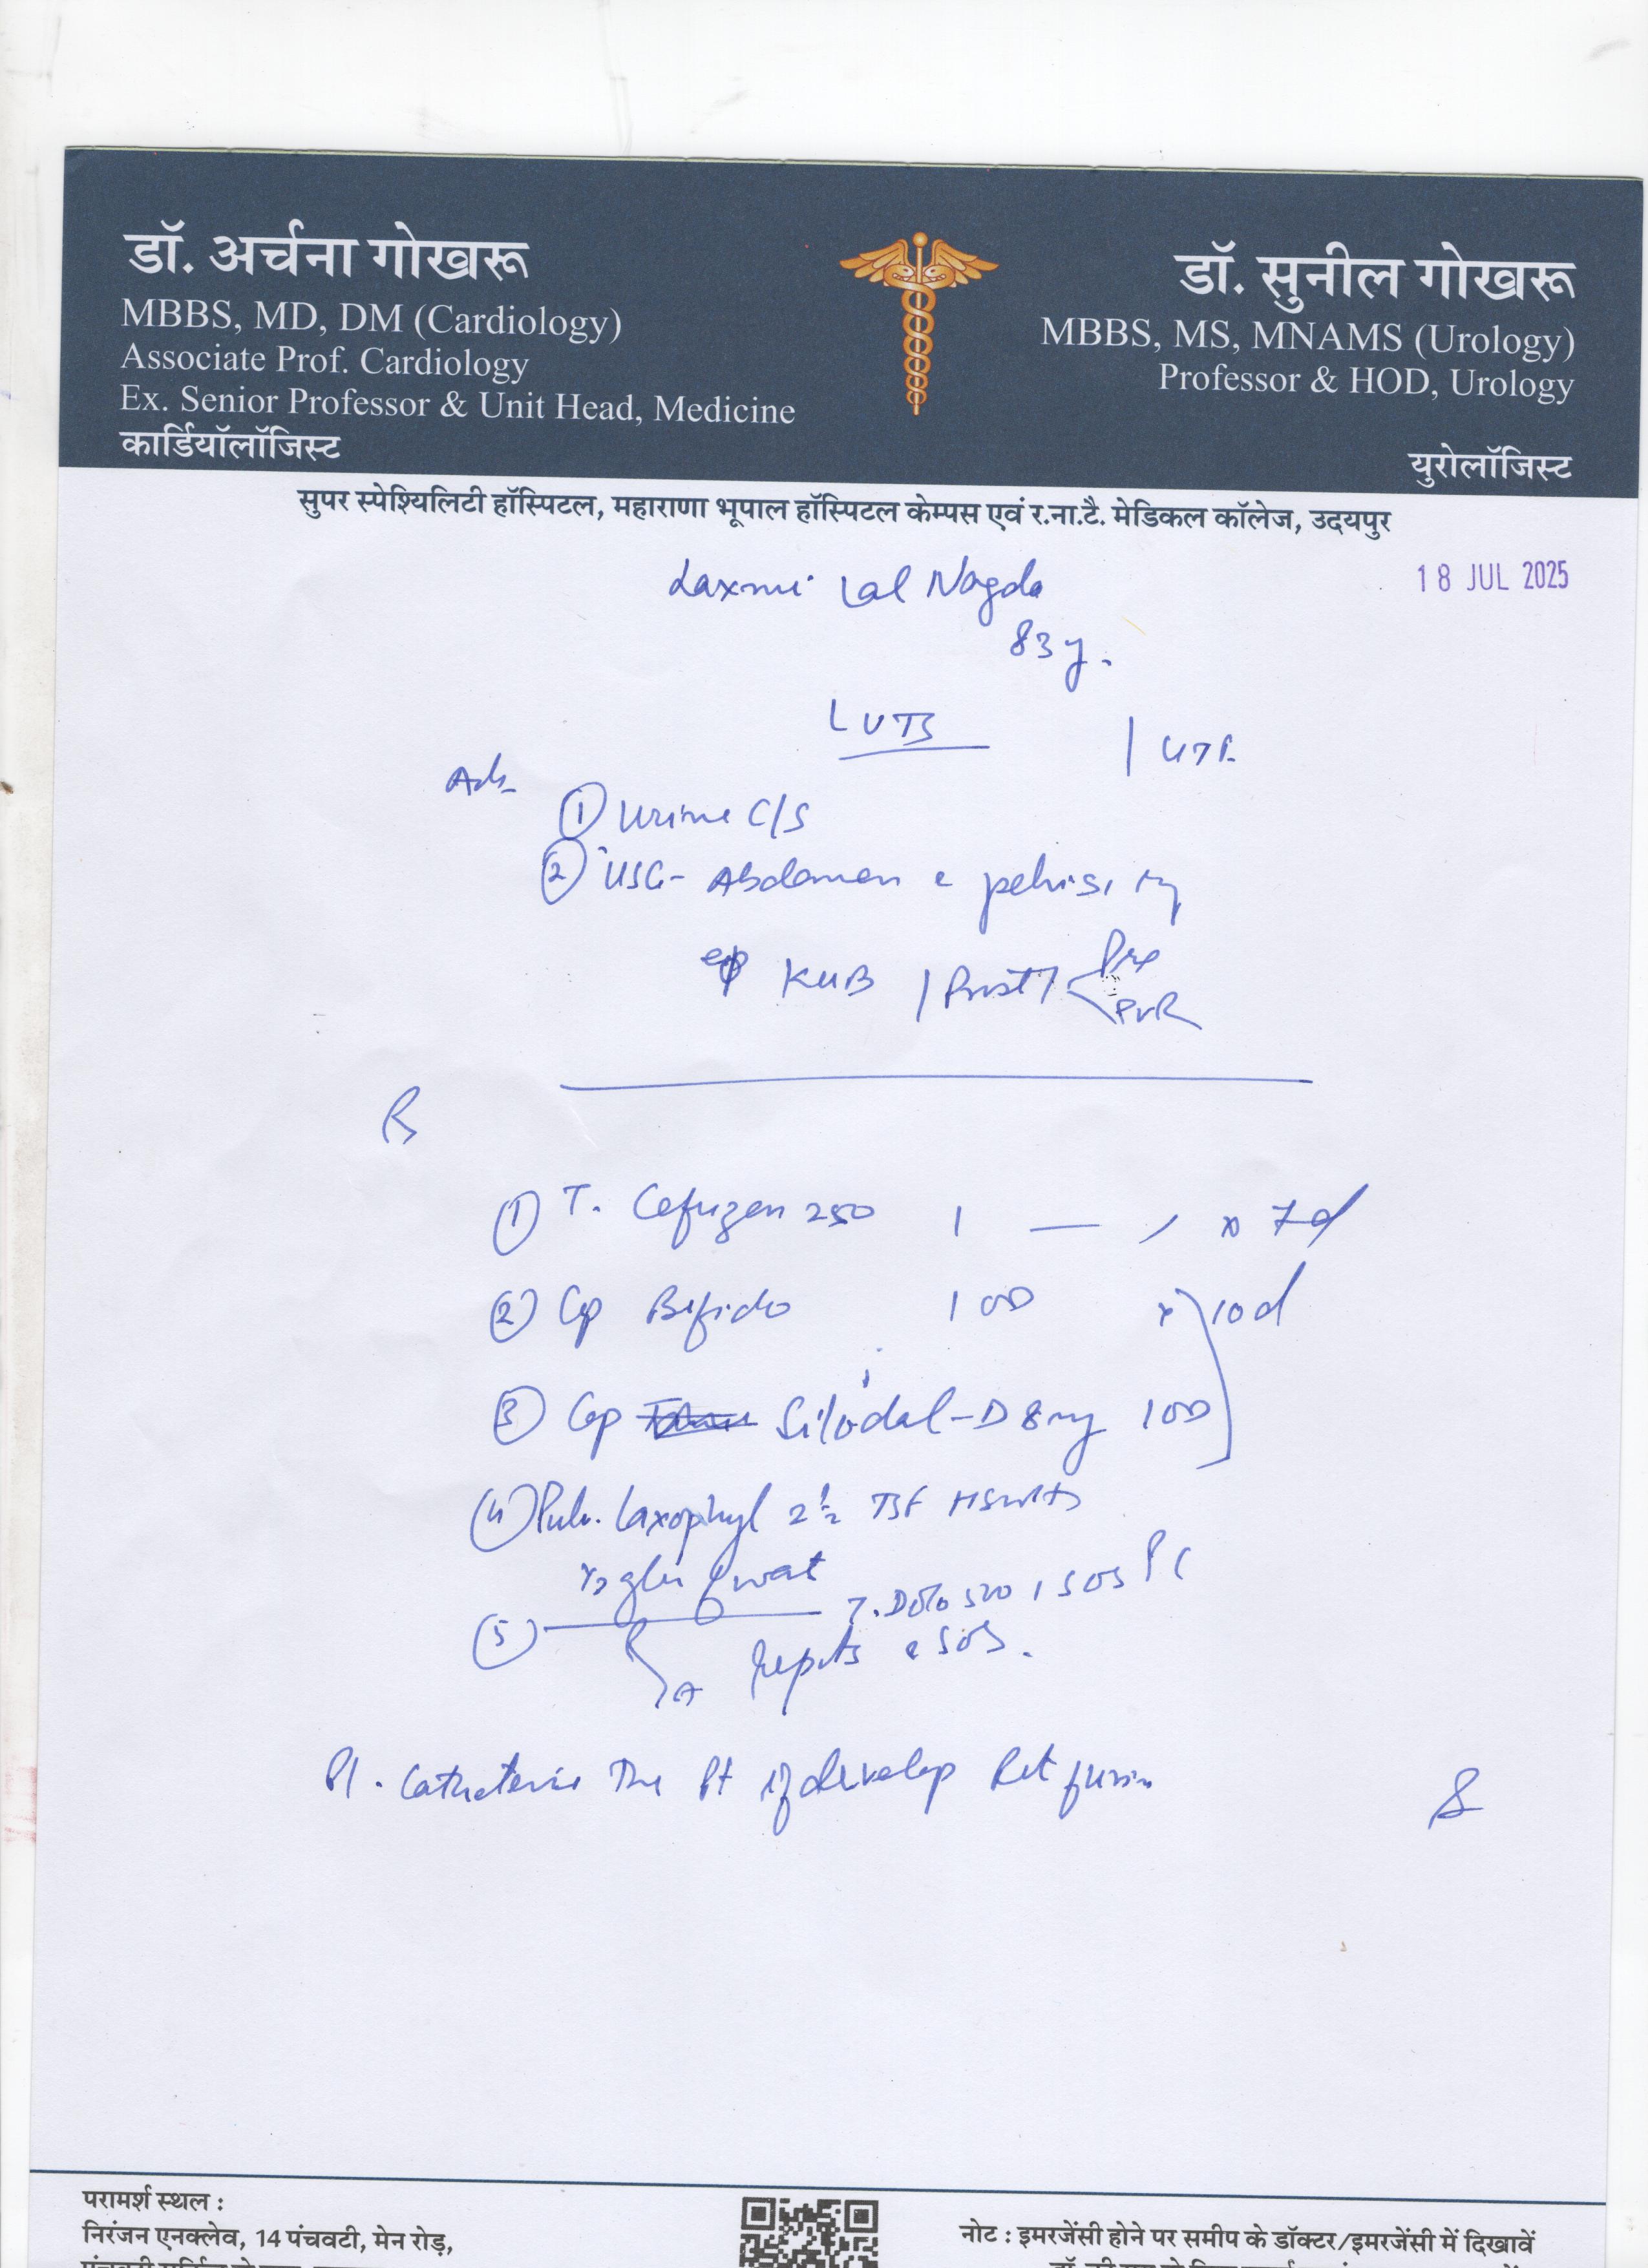 डॉ. अर्चना गोखरू
MBBS, MD, DM (Cardiology)
Associate Prof. Cardiology
Ex. Senior Professor & Unit Head, Medicine
कार्डियॉलॉजिस्ट
डॉ. सुनील गोखरू
MBBS, MS, MNAMS (Urology)
Professor & HOD, Urology
युरोलॉजिस्ट
सुपर स्पेश्यिलिटी हॉस्पिटल, महाराणा भूपाल हॉस्पिटल केम्पस एवं र.ना.टै. मेडिकल कॉलेज, उदयपुर
18 JUL 2025
Laxmi Lal Nagda
83y.
LUTS | UTI
Adv
① Urine C/S
② USG- Abdomen c pelvis
KUB / Prost < Pre
PVR
Rx
① T. Cefuzen 250 1 — 1 x 7d
② Cap Bifido 1 OD x 10d
③ Cap Silodal-D 8mg 1 OD
④ Pulv. Laxophyl 2½ TSF HS
⑤ T. Dolo 500 1 SOS
c SOS.
Pl. Catheterise The Pt if develop Ret
परामर्श स्थल :
निरंजन एनक्लेव, 14 पंचवटी, मेन रोड़,
नोट : इमरजेंसी होने पर समीप के डॉक्टर/इमरजेंसी में दिखावें